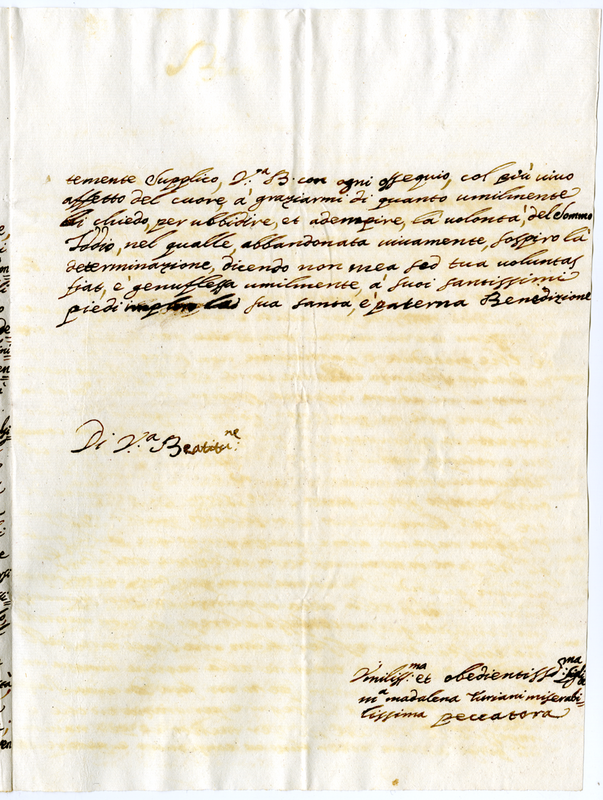 temente Supplico, V.ª B. con ogni ossequio, col più vivo
affetto del cuore, à graziarmi di quanto umilmente
li chiedo, per ubbidire, et adempire, la volontà, del Sommo
Iddio, nel qualle, abbandonata vivamente, sospiro la
determinazione, dicendo non mea sed tua voluntas
fiat, e genuflessa umilmente, à suoi santissimi
piedi imploro la sua santa, è paterna Benedizione
Di V.ª Beatitu.ne
Vmiliss.ma et obedientiss.ma
m.ª madalena turiani miserabi=
lissima peccatora